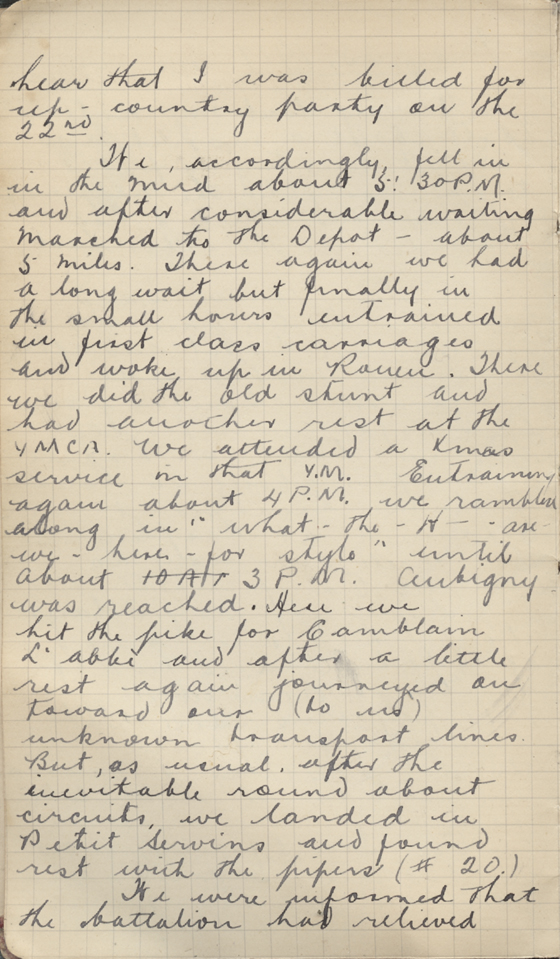 hear that I was billed for
up-country party on the
22nd.
We, accordingly, fell in
in the mud about 5:30 P.M.
and after considerable waiting
marched to the Depot - about
5 miles. There again we had
a long wait but finally in
the small hours entrained
in first class carriages
and woke up in Rouen. There
we did the old stunt and
had another rest at the
YMCA. We attended a Xmas
service in that Y.M. Entraining
again about 4 P.M. we rambled
along in "what-the-H--are-
we-here-for style" until
about 10 A.M. 3 P.M. Aubigny
was reached. Here we
hit the pike for Camblain
L'abbé and after a little
rest again journeyed on
toward our (to us)
unknown transport lines.
But, as usual, after the
inevitable round about
circuits, we landed in
Petit Servins and found
rest with the pipers (# 20.)
We were informed that
the battalion had relieved